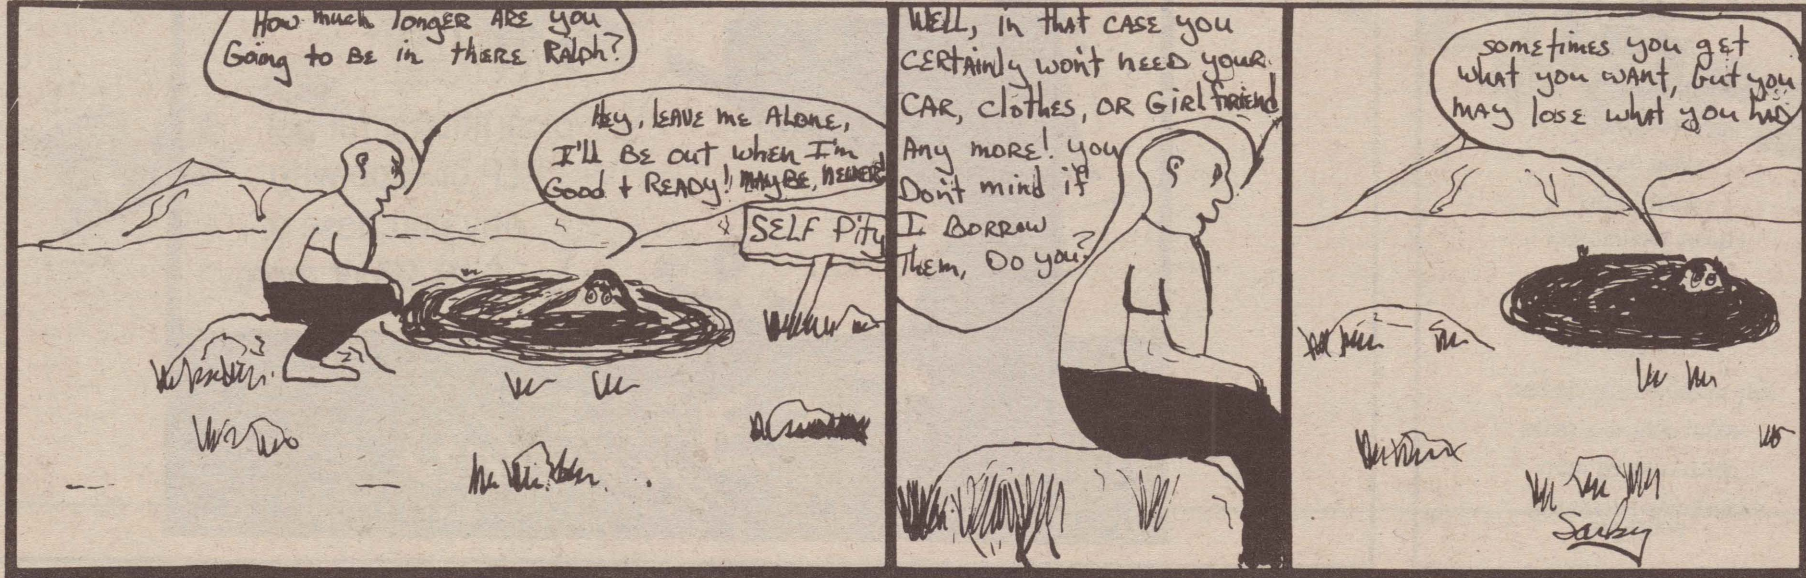 How much longer ARE you
Going to BE in thERE RAlph?
Hey, lEAVE me AlONE,
I'll BE out when I'm
Good + READY! MAYBE, NEVER!
SELF Pity
WELL, in thAt CASE you
CERtAinly won't NEED your
CAR, clothes, OR Girl friEND
Any morE! you
Don't mind if
I BORROW
thEm, Do you?
sometimes you get
whAt you wANt, but you
mAy losE whAt you hAD